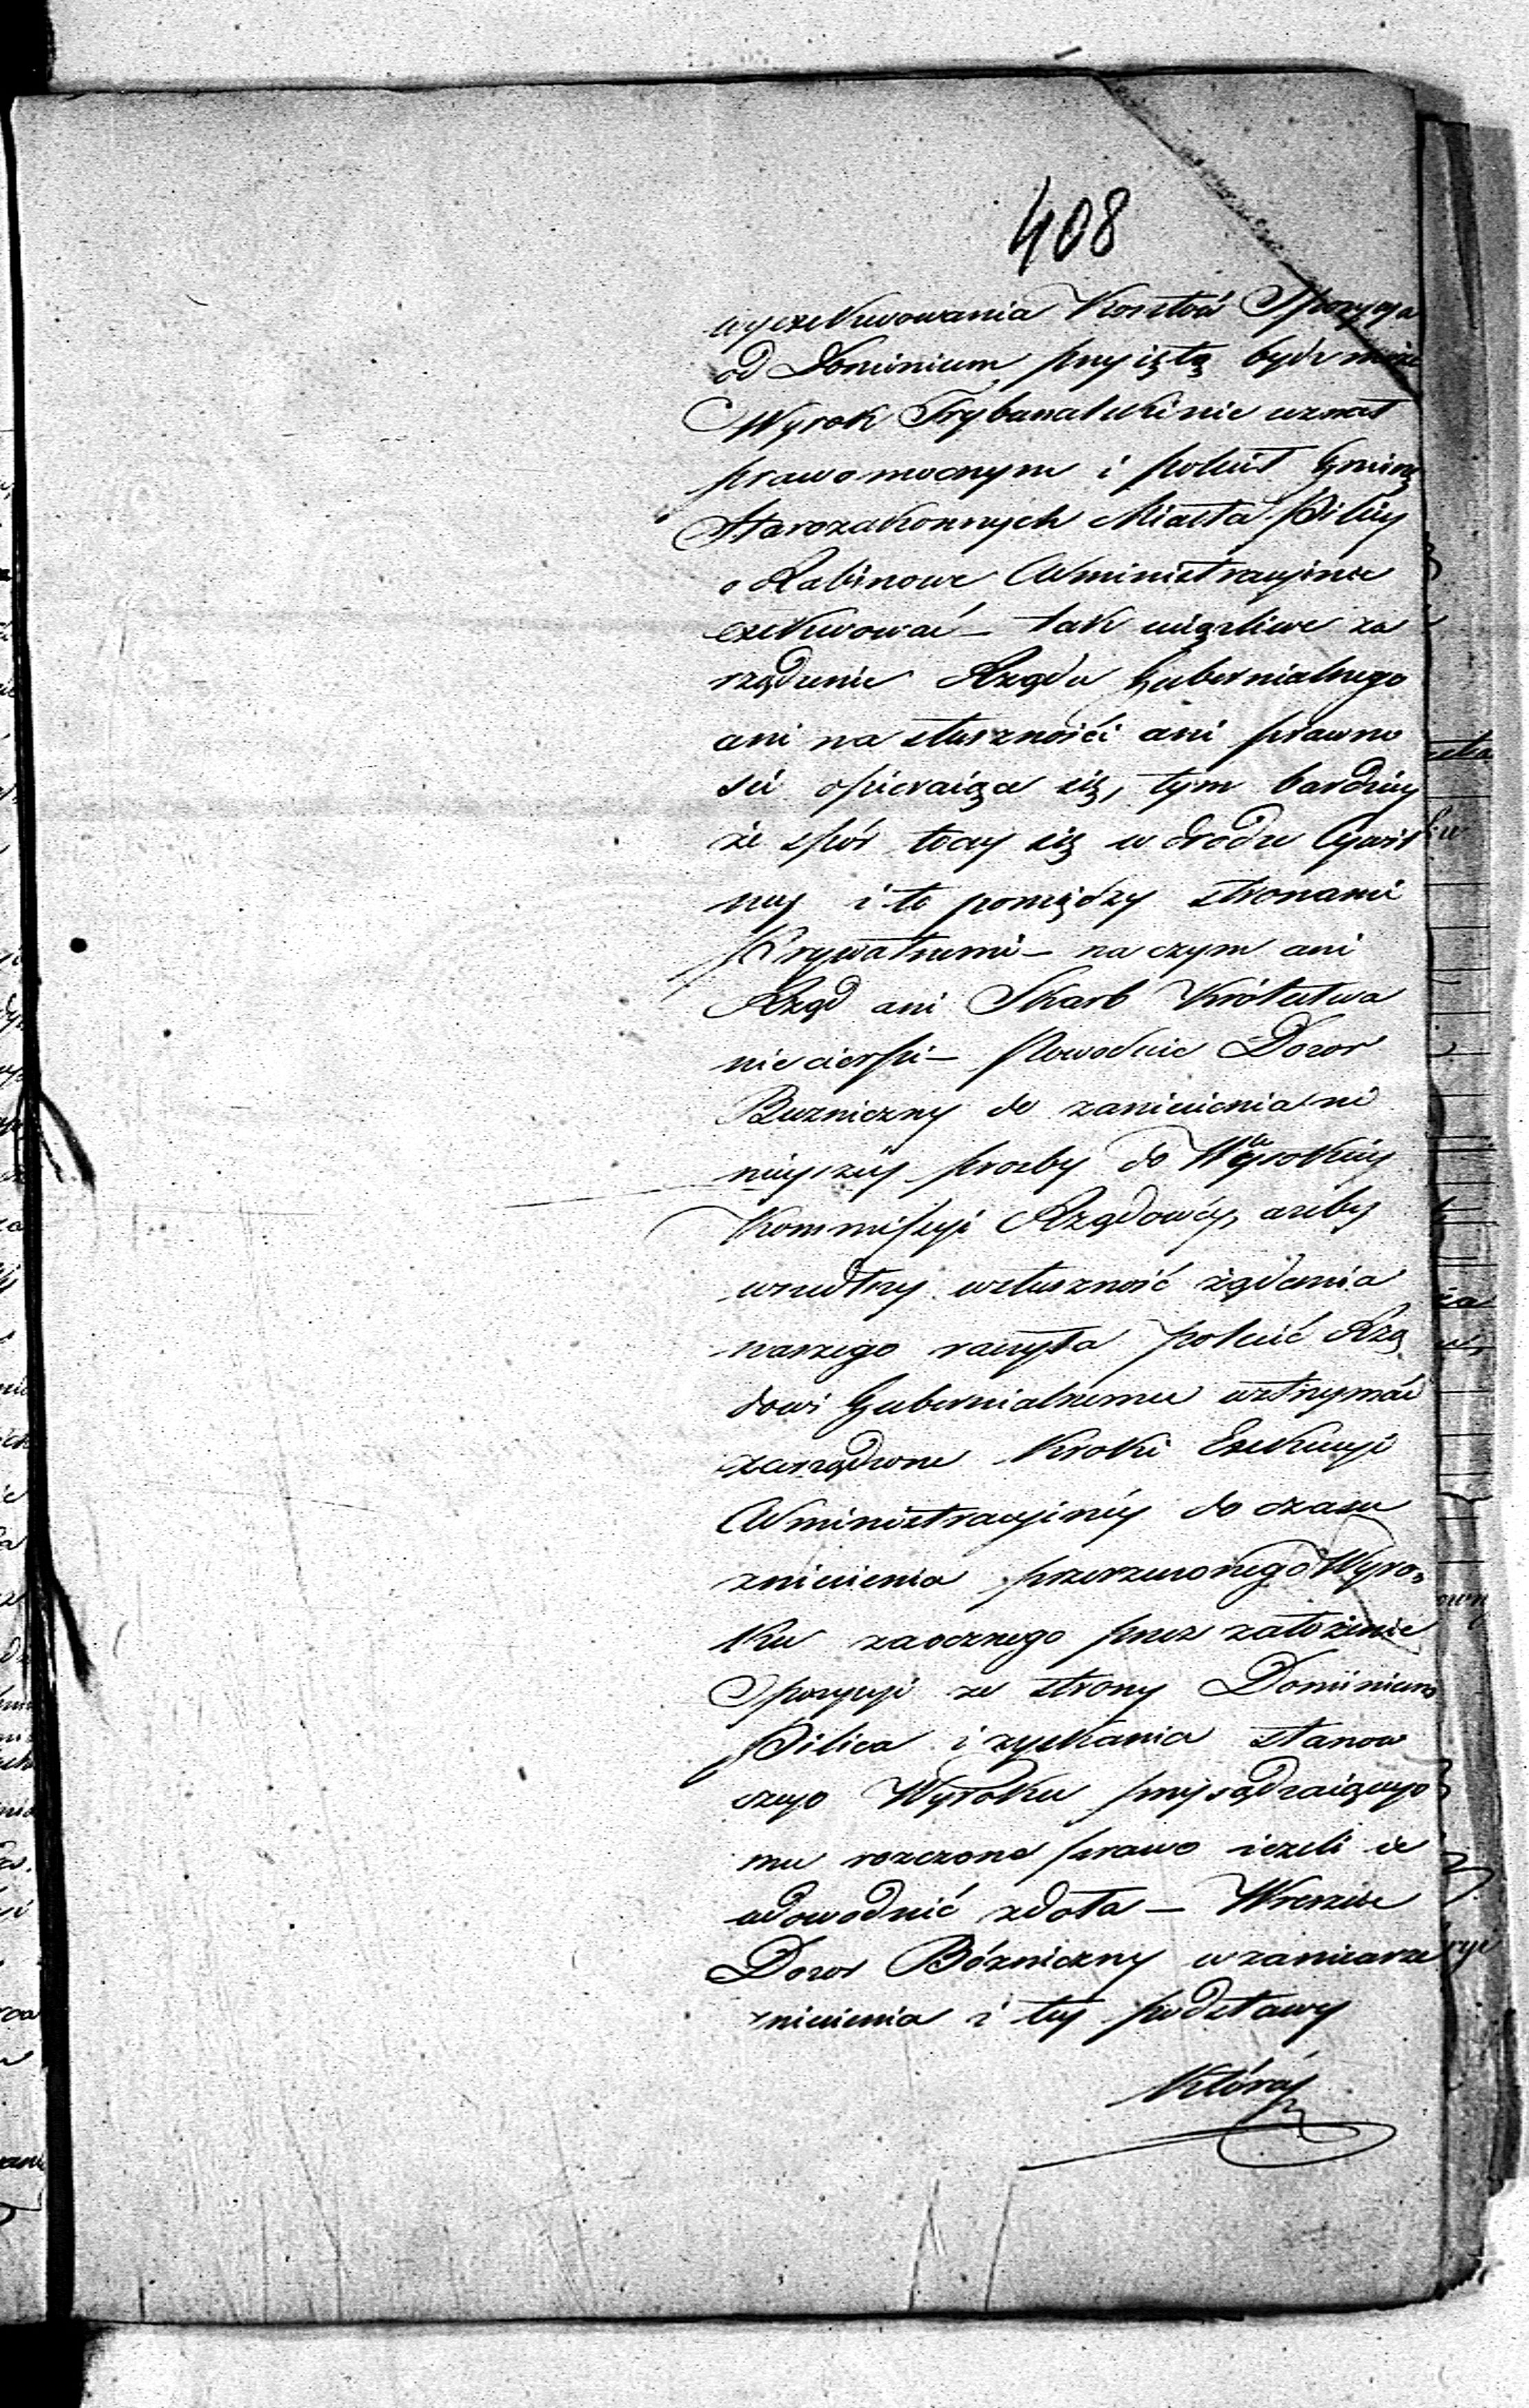 408
wyexekwowania Kosztów Opozycya
od Dominium przyiętą bydź może
Wyrok Trybunalski nie uznał
prawomocnym i polecił Gminę
Starozakonnych Miasta Pilicy
o Rabinowe Administracyinie
exekwować – tak uciążliwe za
rządzenie Rządu Gubernialnego
ani na słuszności ani prawno
ści opieraiąca się, tym bardziey
że spór toczy się w drodze Cywil
ney i to pomiędzy stronami
Prywatnemi – na czym ani
Rząd ani Skarb Królestwa
nie cierpi – Powoduie Dozor
Buzniczny do zaniesienia ni
nieyszéy prozby do Wysokiéy
Kommissyi Rządowéy, ażeby
weszedłszy w słuszność żądania
naszego raczyła polecić Rzą
dowi Gubernialnemu wstrzymać
zarządzone Kroki Exekucyi
Administracyinéy do czasu
zniesienia przerzeczonego Wyro=
ku zaocznego przez założenie
Opozycyi ze strony Dominium
Pilica i zyskania stanow
czego Wyroku przysądzaiącego
mu rozczone prawo ieżeli ie
udowodnić zdoła – Wreszcie
Dozor Bózniczny w zamiarze
zniesienia i tey podstawy
któréj